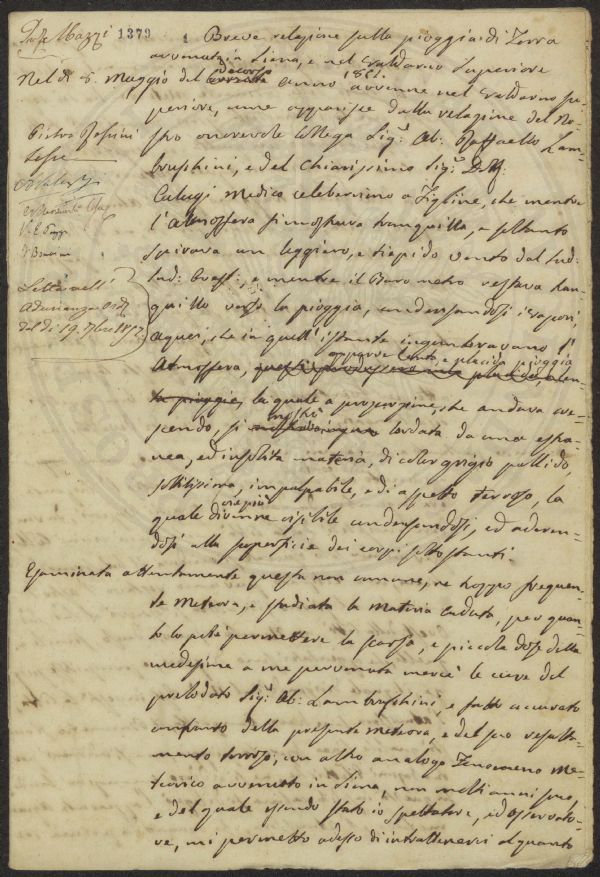 Prof. Mazzi 1379
1 Breve relazione sulla pioggia di Terra
avvenuta in Siena, e nel Valdarno Superiore
Nel dì 8. Maggio del decorso anno 1851. avvenne nel Valdarno Su-
periore, come apparisce dalla relazione del No-
stro onorevole Collega Sig.r Ab. Raffaello Lam-
bruschini, e del Chiarissimo Sig.r Dott.
Calugi Medico celeberrimo a Figline, che mentre
l'Atmosfera si mostrava tranquilla, e soltanto
spirava un leggiero, e tiepido vento dal Sud-
Sud-Ovest, e mentre il Barometro restava tran-
quillo verso la pioggia, condensandosi i vapori
aquei, che in quell'istante ingombravano l'
Atmosfera, apparve lenta e placida pioggia
la quale a proporzione, che andava cre-
scendo, si mostrò lordata da una estra-
nea, ed insolita materia, di color grigio pallido,
sottilissima, impalpabile, e di aspetto terroso, la
quale divenne vie più visibile condensandosi, ed aderen-
dosi alla superficie dei corpi sottostanti.
Esaminata attentamente questa non comune, ne troppo frequen-
te Meteora, e studiata la materia caduta, per quan-
to lo potè permettere la scarsa, e piccola dose della
medesima a me pervenuta mercè le cure del
prelodato Sig.r Ab. Lambruschini, e fatto accurato
confronto della presente meteora, e del suo resulta-
mento terroso, con altro analogo Fenomeno Me-
teorico avvenuto in Siena, non molti anni sono,
e del quale essendo stato io spettatore, ed osservato-
re, mi permetto adesso di intrattenervi alquanto
Pietro
Letta nell'
Adunanza
del dì 19.